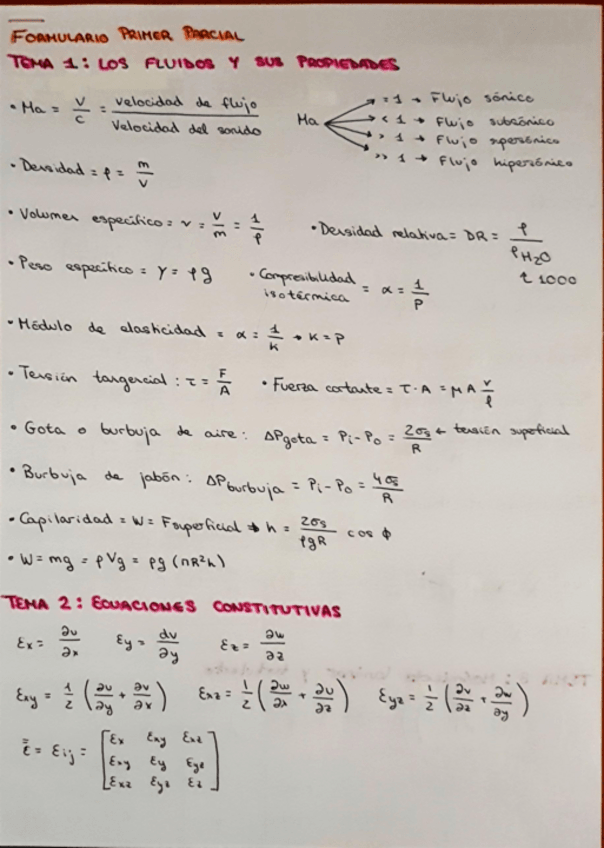 FORMULARIO PRIMER PARCIAL
TEMA 1: LOS FLUIDOS Y SUS PROPIEDADES
• Ma = V/c = velocidad de flujo / Velocidad del sonido
Ma
= 1 → Flujo sónico
< 1 → Flujo subsónico
> 1 → Flujo supersónico
>> 1 → Flujo hipersónico
• Densidad = ρ = m/V
• Volumen específico = v = V/m = 1/ρ
• Densidad relativa = DR = ρ/ρH2O
↳ 1000
• Peso específico = γ = ρg
• Compresibilidad isotérmica = α = 1/P
• Módulo de elasticidad = α = 1/K → K = P
• Tensión tangencial : τ = F/A
• Fuerza cortante = τ · A = μ A v/l
• Gota o burbuja de aire : ΔPgota = Pi - Po = 2σs/R ← tensión superficial
• Burbuja de jabón : ΔPburbuja = Pi - Po = 4σs/R
• Capilaridad = W = Fsuperficial → h = 2σs/ρgR cos ϕ
• W = mg = ρVg = ρg (πR²h)
TEMA 2 : ECUACIONES CONSTITUTIVAS
εx = ∂u/∂x εy = dv/∂y εz = ∂w/∂z
εxy = 1/2 (∂u/∂y + ∂v/∂x) εxz = 1/2 (∂w/∂x + ∂u/∂z) εyz = 1/2 (∂v/∂z + ∂w/∂y)
ε̿ = εij = [εx εxy εxz
εxy εy εyz
εxz εyz εz]